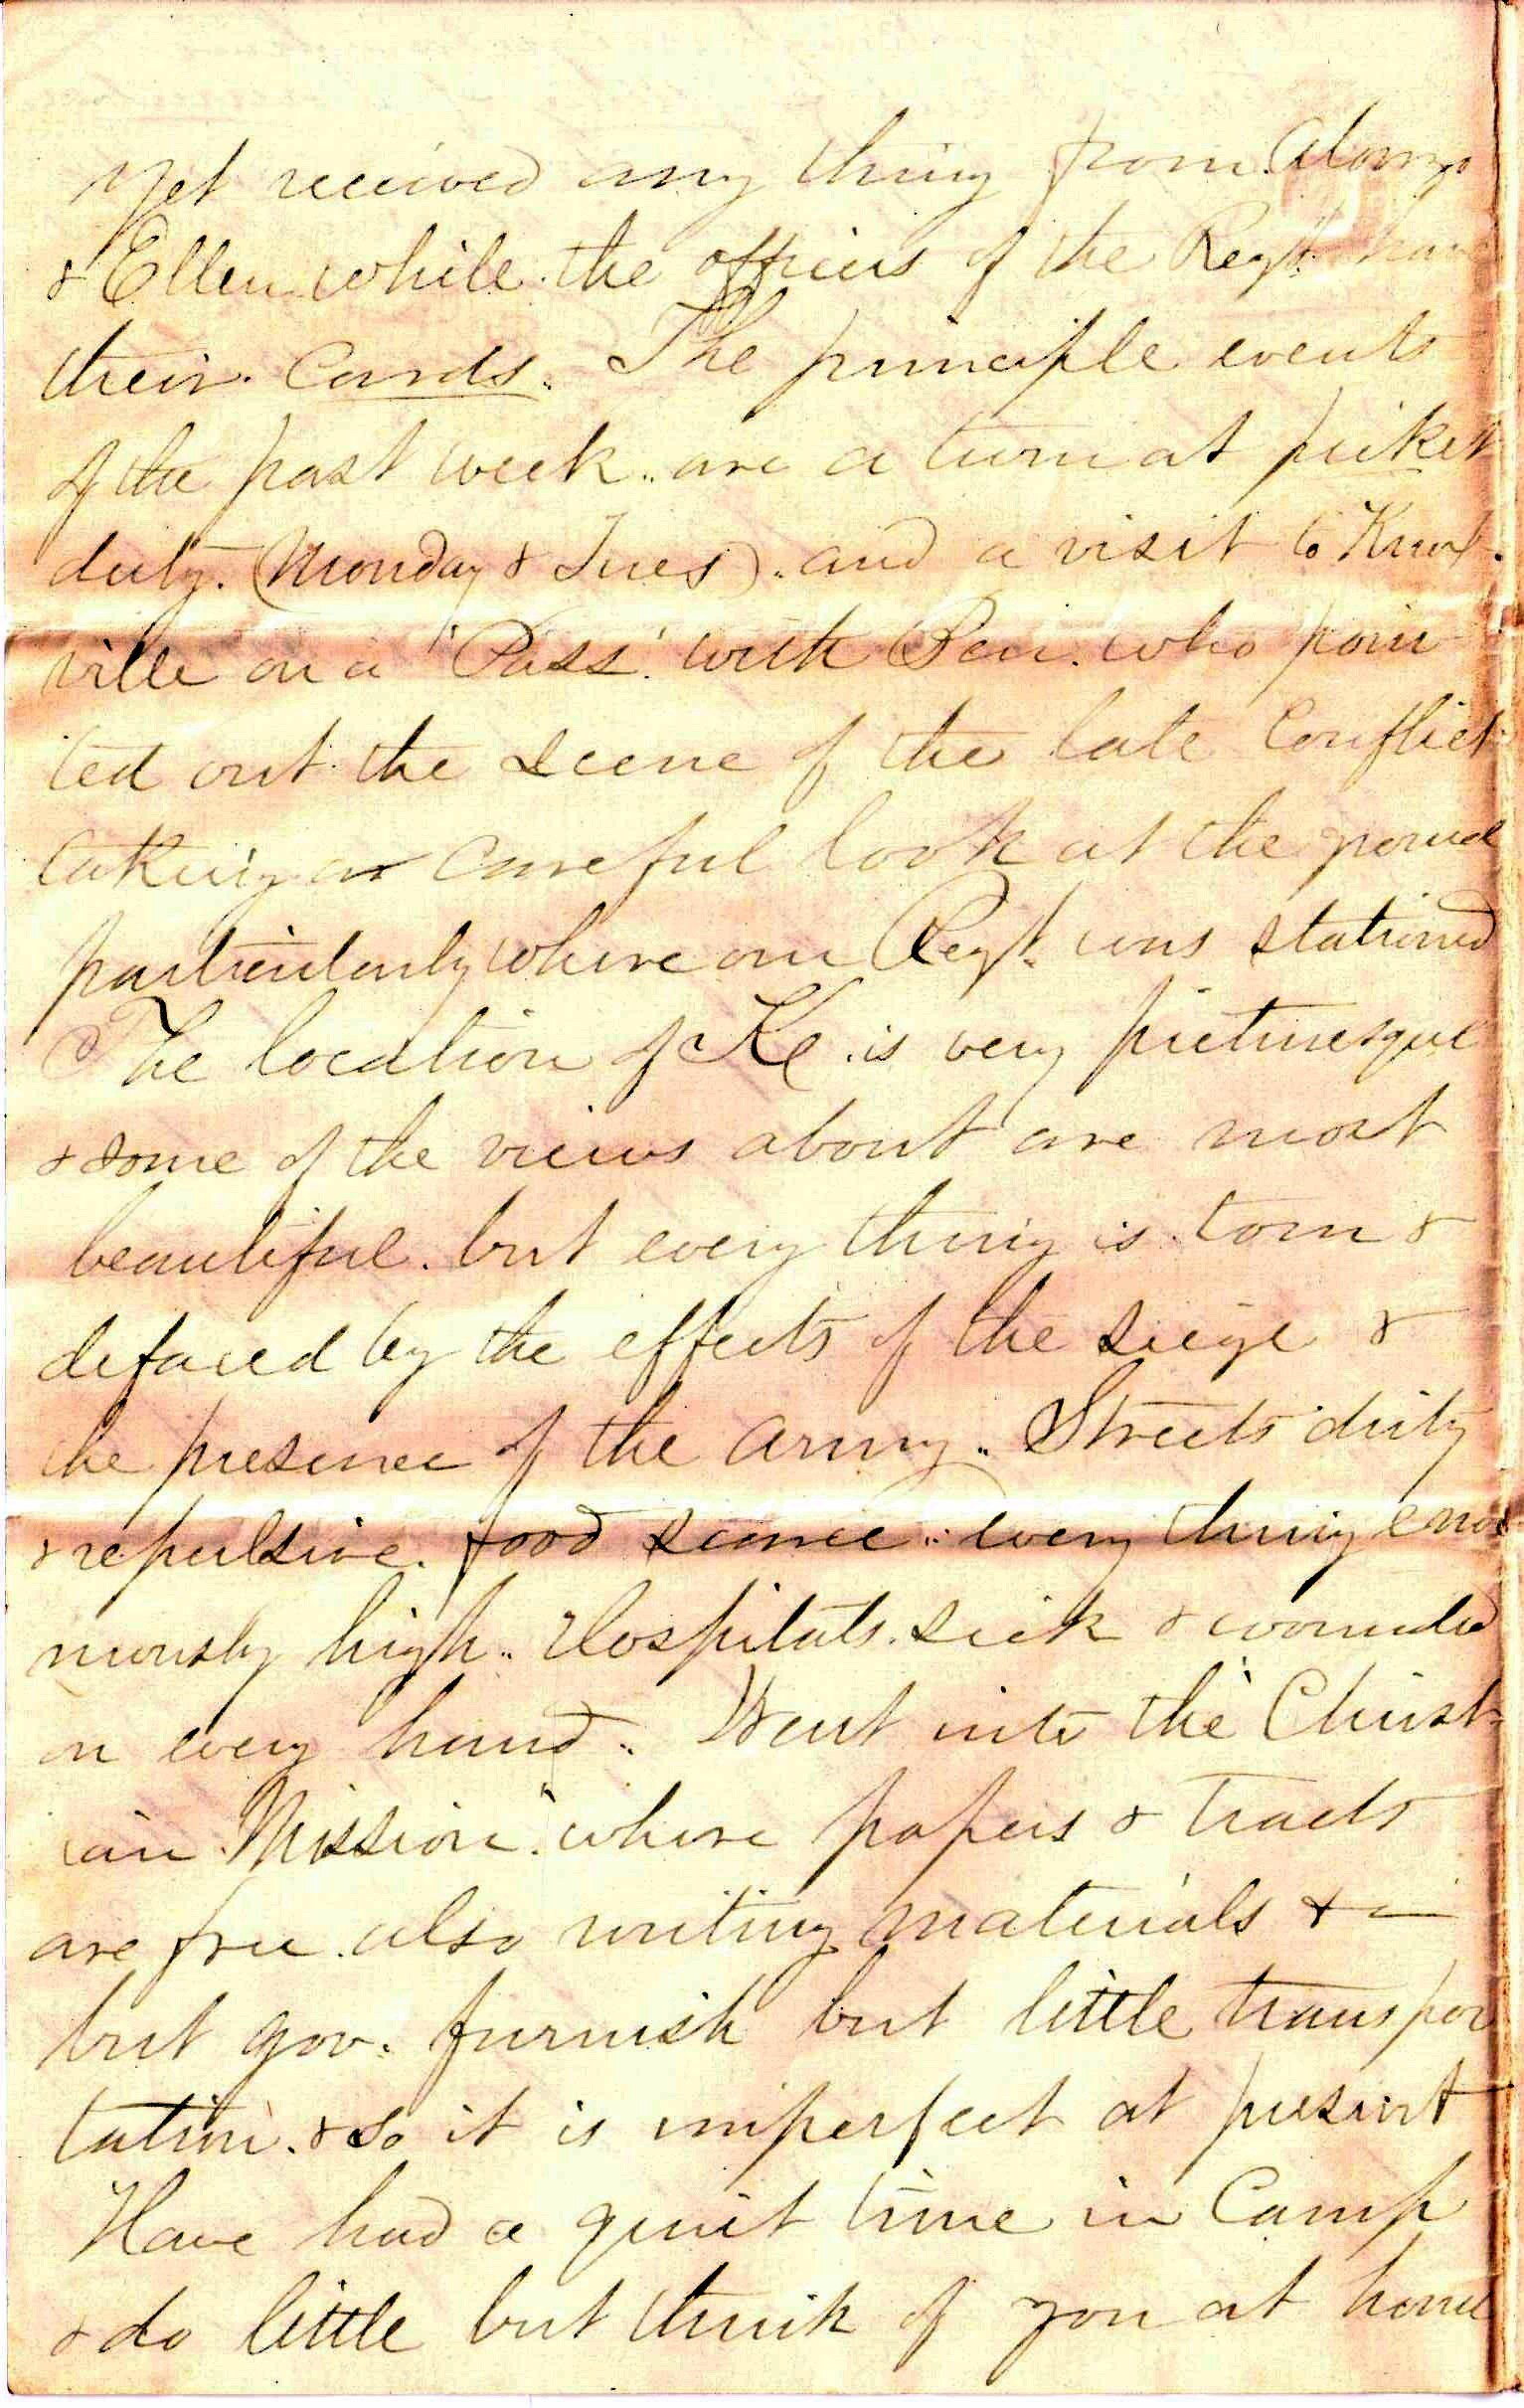 yet received any thing from Alonzo
& Ellen while the officers of the Regt. have
their Cards. The principle events
of the past week.. are a turn at picket
duty. (Monday & Tues).. and a visit to Knox-
ville on a 'Pass'. with Ben. who poin
ted out the scene of the late Conflict
taking a careful look at the ground
particularly where our Regt. was stationed
The location of K. is very picturesque
& some of the views about are most
beautiful. but every thing is torn &
defaced by the effects of the siege &
the presence of the army.. Streets dirty
& repulsive. food scarce.. every thing enor
mously high.. Hospitals. sick & wounded
on every hand.. Went into the "Christ
ian Mission". where papers & tracts
are free. also writing materials &c
but gov. furnish but little transpor
tation. & so it is imperfect at present
Have had a quiet time in Camp
& do little but think of you at home